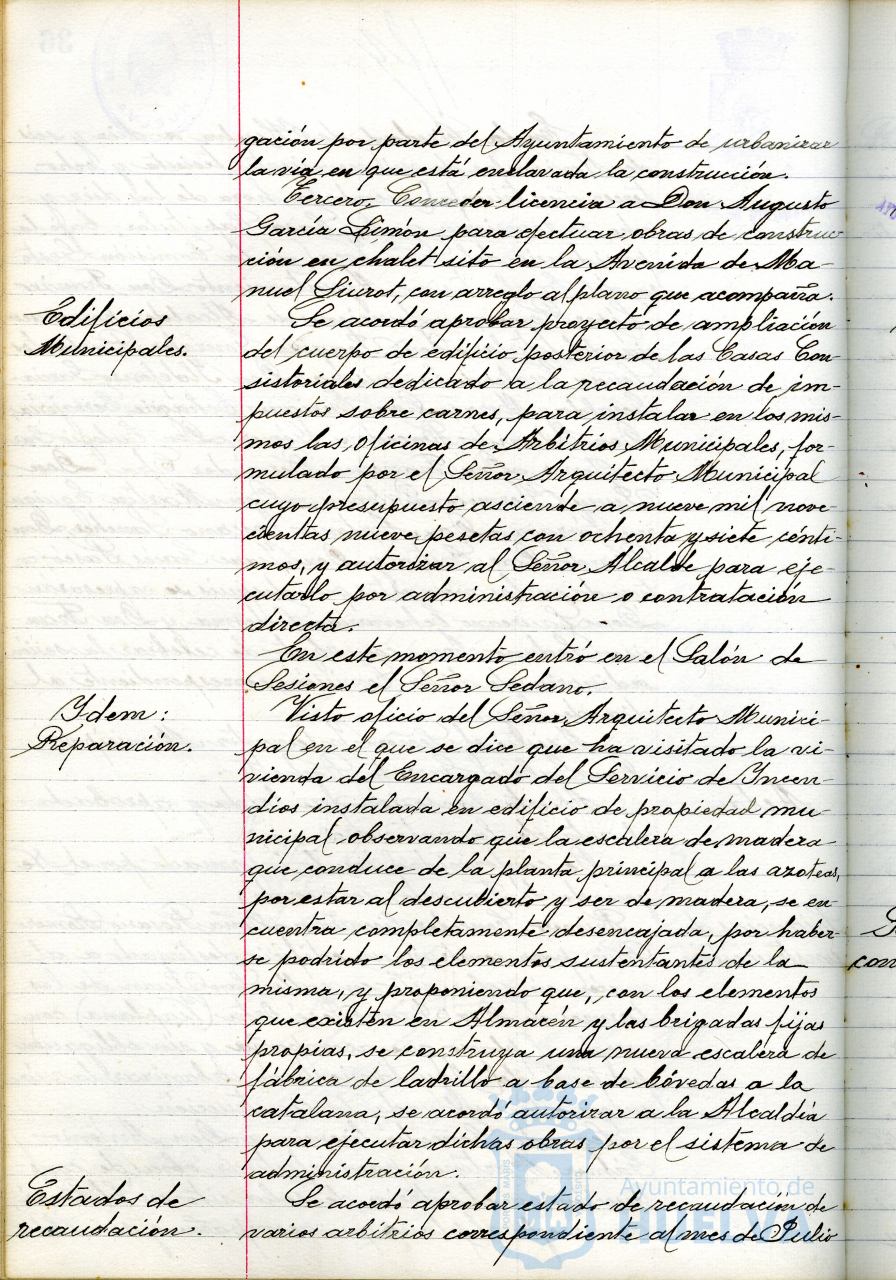 gación por parte del Ayuntamiento de urbanizar
la vía en que está enclavada la construcción.
Tercero, Conceder licencia a Don Augusto
García Simón para efectuar obras de construc
ción en chalet sito en la Avenida de Ma-
nuel Siurot, con arreglo al plano que acompaña.
Edificios
Municipales.
Se acordó aprobar proyecto de ampliación
del cuerpo de edificio posterior de las Casas Con
sistoriales dedicado a la recaudación de im-
puestos sobre carnes, para instalar en los mis-
mos las oficinas de Arbitrios Municipales, for-
mulado por el Señor Arquitecto Municipal
cuyo presupuesto asciende a nueve mil nove-
cientas nueve pesetas con ochenta y siete cénti-
mos, y autorizar al Señor Alcalde para eje-
cutarlo por administración o contratación
directa.
En este momento entró en el Salón de
Sesiones el Señor Sedano.
Ydem:
Reparación.
Visto oficio del Señor Arquitecto Munici-
pal en el que se dice que ha visitado la vi-
vienda del Encargado del Servicio de Yncen-
dios instalada en edificio de propiedad mu-
nicipal observando que la escalera de madera
que conduce de la planta principal a las azoteas,
por estar al descubierto y ser de madera, se en
cuentra completamente desencajada, por haber-
se podrido los elementos sustentantes de la
misma, y proponiendo que, con los elementos
que existen en Almacén y las brigadas fijas
propias, se construya una nueva escalera de
fábrica de ladrillo a base de bóvedas a la
catalana, se acordó autorizar a la Alcaldía
para ejecutar dichas obras por el sistema de
administración.
Estados de
recaudación.
Se acordó aprobar estado de recaudación de
varios arbitrios correspondiente al mes de Julio
Ayuntamiento de
HUELVA